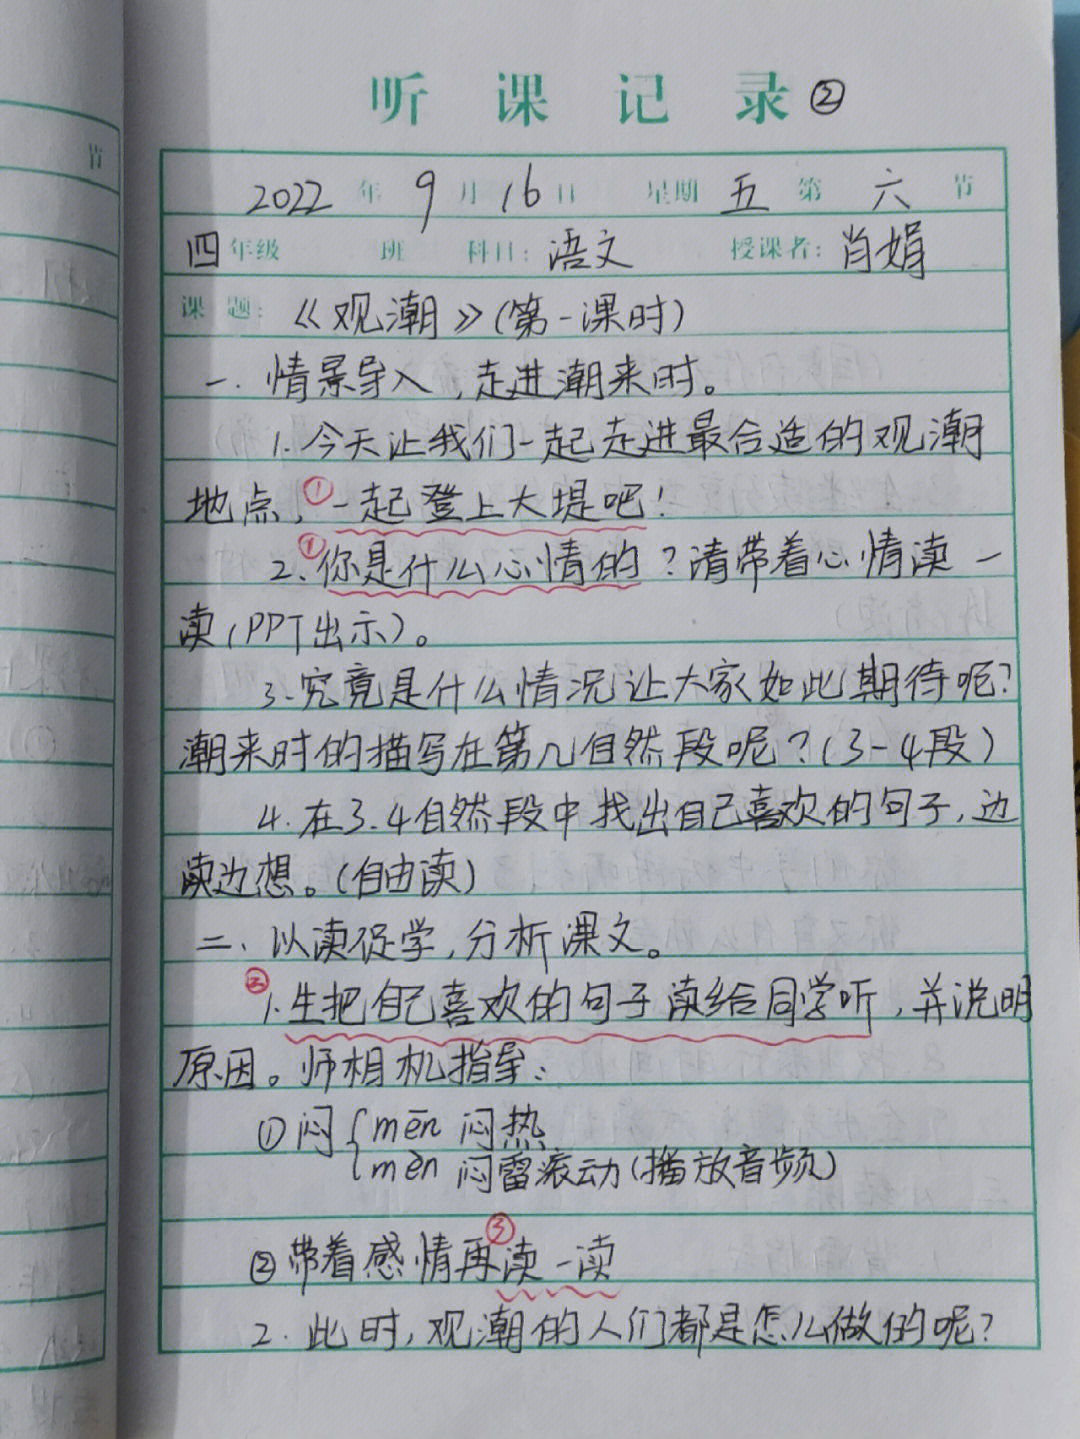 听课记录②
2022年9月16日 星期五 第六节
四年级 班 科目：语文 授课者：肖娟
课题：《观潮》（第一课时）
一、情景导入，走进潮来时。
1.今天让我们一起走进最合造的观潮
地点，①一起登上大堤吧！
2.①你是什么心情的？请带着心情读一
读（PPT出示）。
3.究竟是什么情况让大家如此期待呢？
潮来时的描写在第几自然段呢？（3-4段）
4.在3.4自然段中找出自己喜欢的句子，边
读边想。（自由读）
二、以读促学，分析课文。
②1.生把自己喜欢的句子读给同学听，并说明
原因。师相机指导：
①闷{mēn 闷热
mèn 闷雷滚动（播放音频）
②带着感情再③读一读
2.此时，观潮的人们都是怎么做的呢？
节